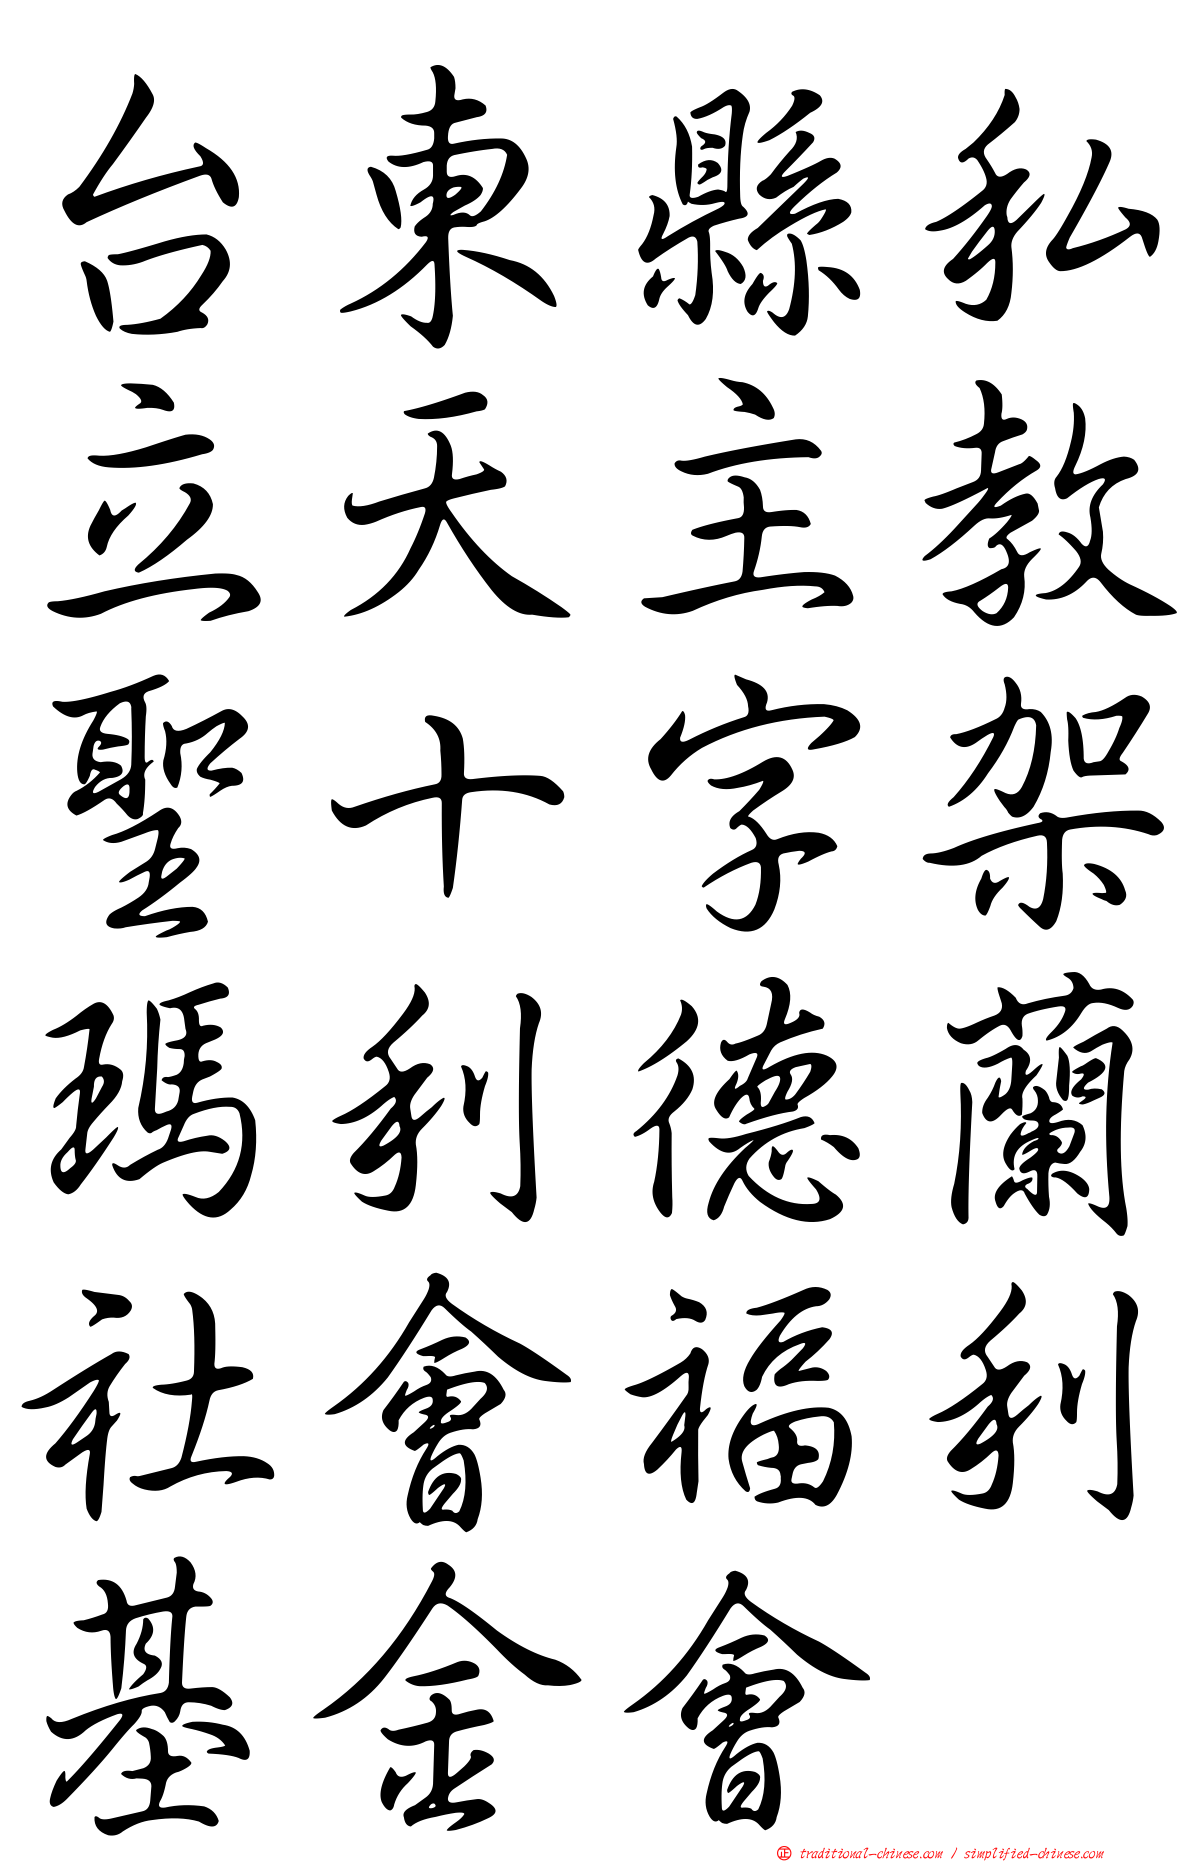 台東縣私
立天主教
聖十字架
瑪利德蘭
社會福利
基金會
正 traditional-chinese.com / simplified-chinese.com